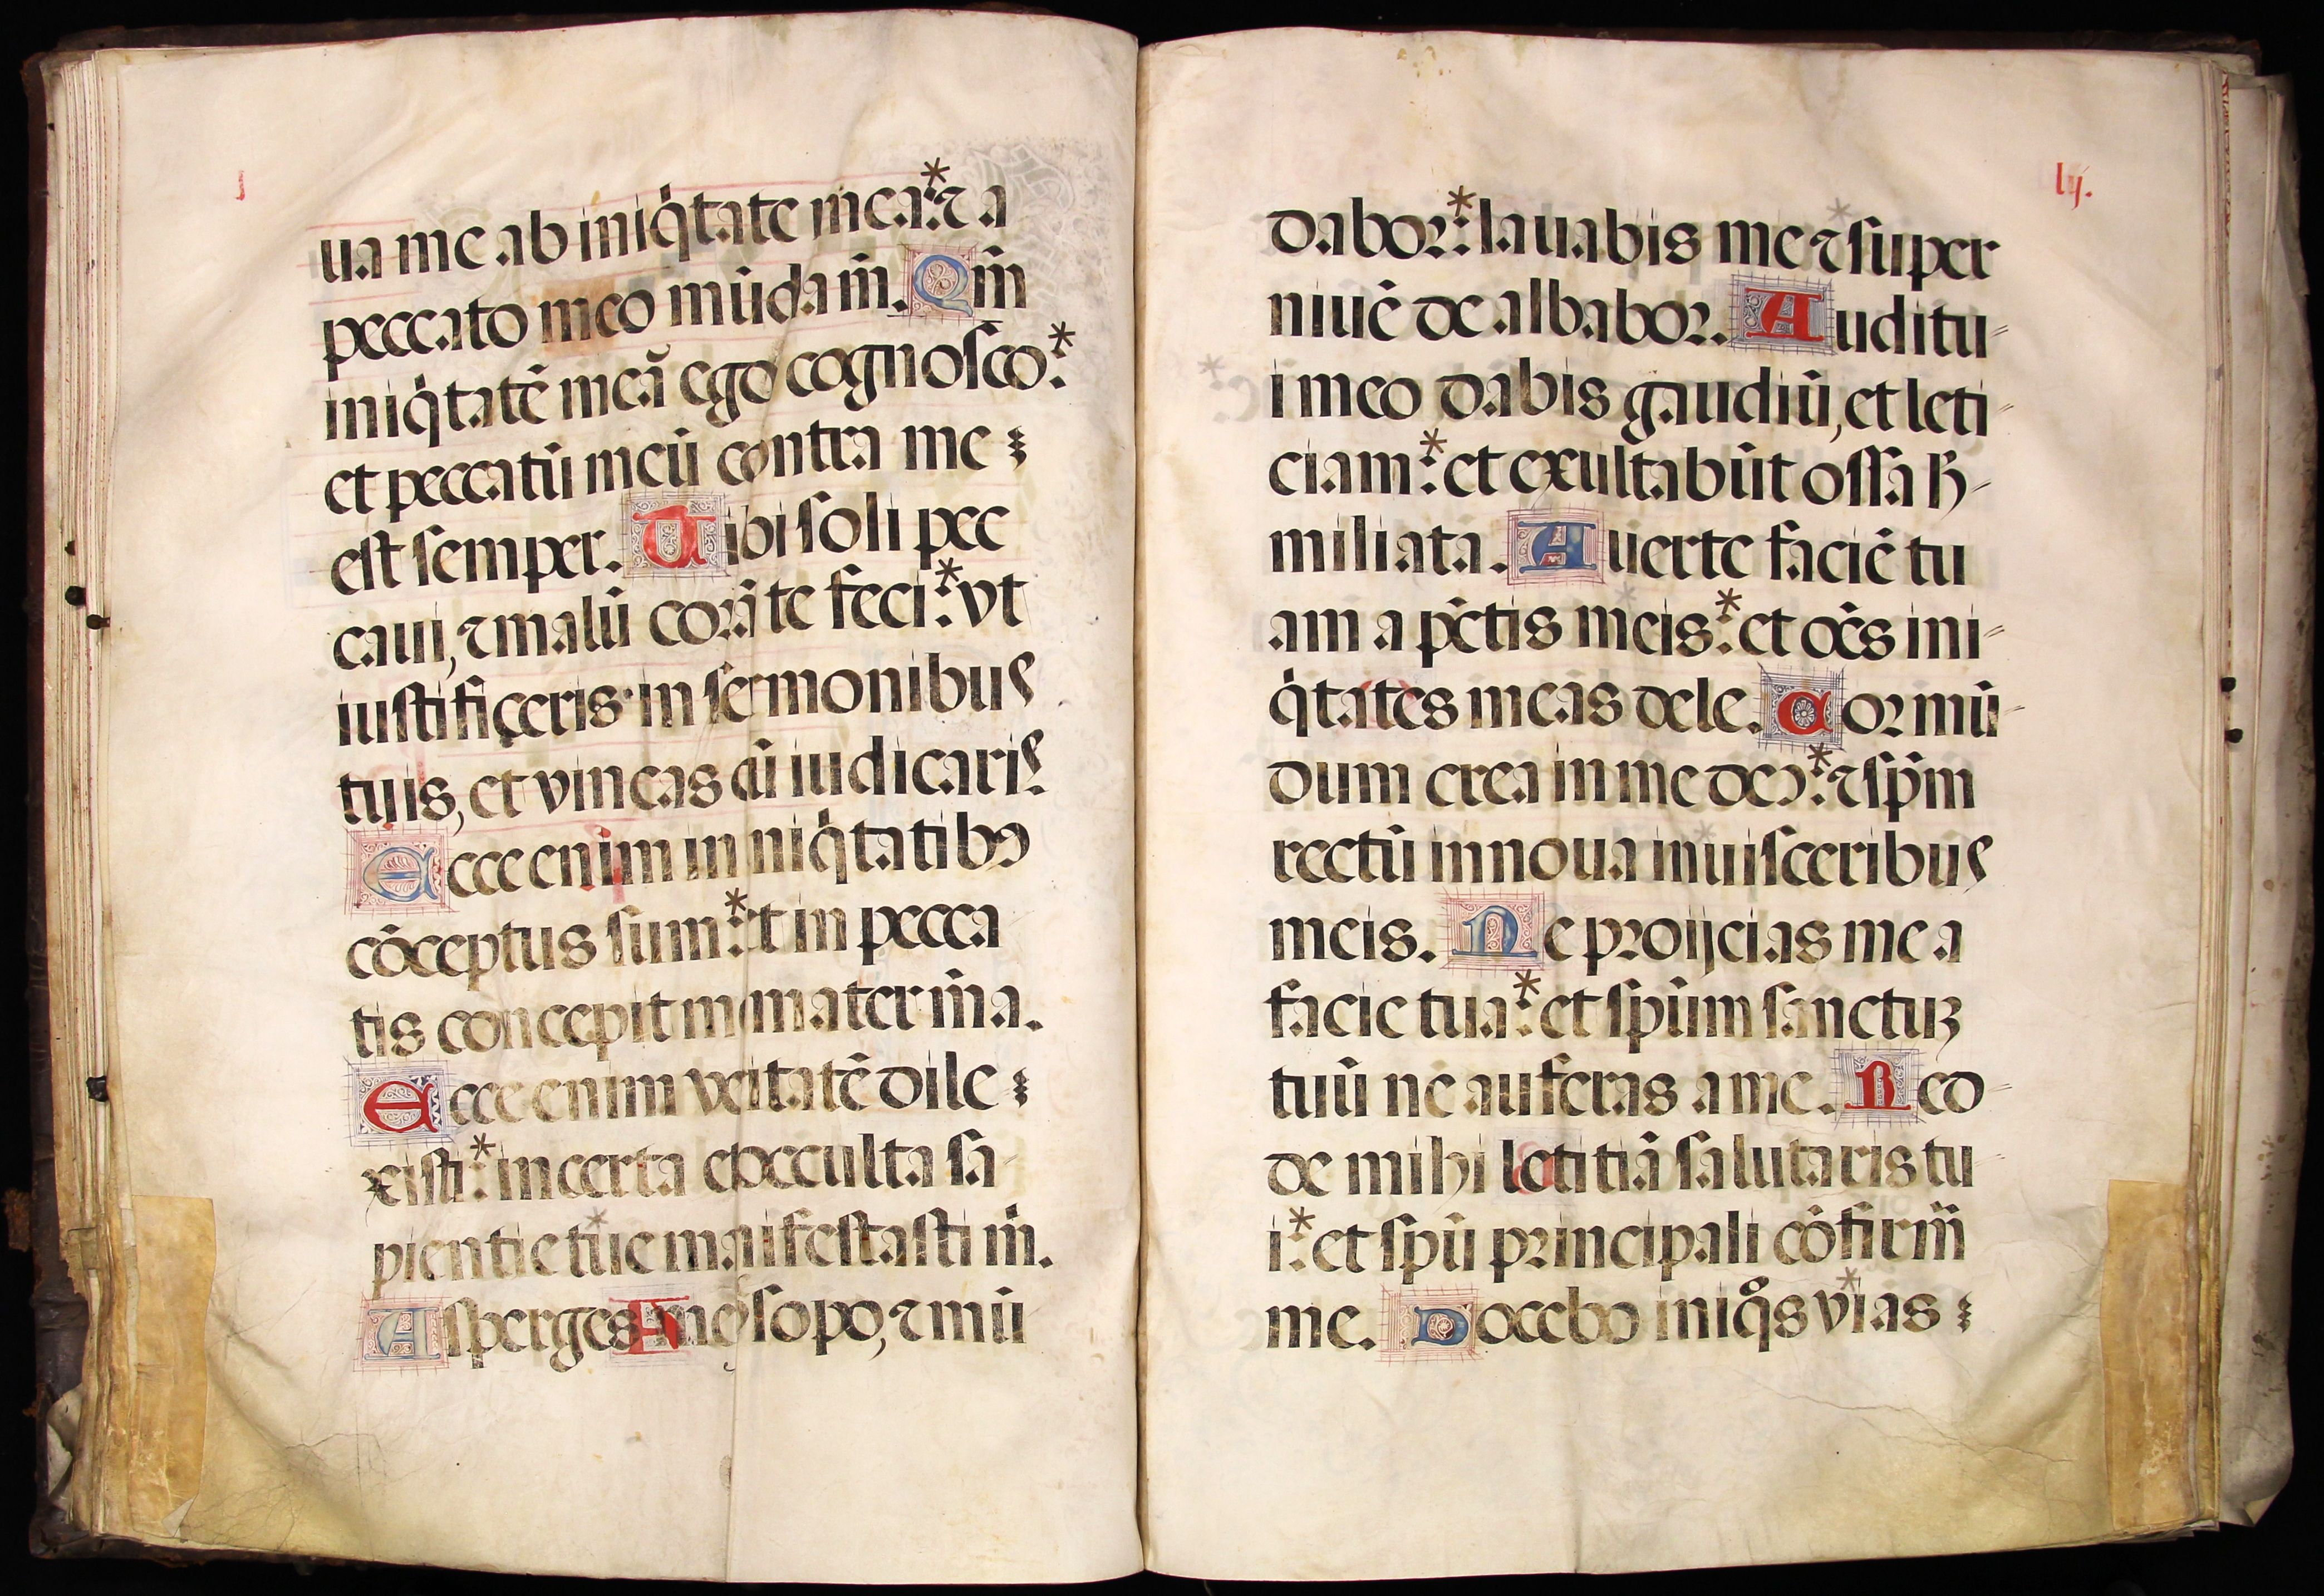 j
ua me ab iniq̇tate mea:* ⁊ a
peccato meo mūda m̄. Qm̄
iniq̇tatē meā ego cognosco:*
et peccatū meū contra me
est semper. Tibi soli pec
caui, ⁊ malū corā te feci:* vt
iustificeris in sermonibus
tuis, et vincas cū iudicaris.
Ecce enim in niq̇tatibꝰ
cōceptus sum:* et in pecca
tis concepit me mater m̄a.
Ecce enim veitatē dile
xisti:* incerta et occulta sa
pientie tue manifestasti m̄.
Asperges me ysopo, ⁊ mū
lij.
dabor:* lauabis me ⁊ super
niuē de albabor. Auditu-
i meo dabis gaudiū, et leti-
ciam:* et exultabūt ossa h̄-
miliata. Auerte faciē tu
am a pc̄tis meis:* et oēs ini-
q̇tates meas dele. Cor mū-
dum crea in me deꝰ:* ⁊ sp̄m
rectū innoua in uisceribus
meis. Ne proijcias me a
facie tua:* et spūm sanctuꝫ
tuū ne auferas a me. Red-
de mihi letitiā salutaris tu-
i:* et spū principali cōfirm̄
me. Docebo iniqͦs vias